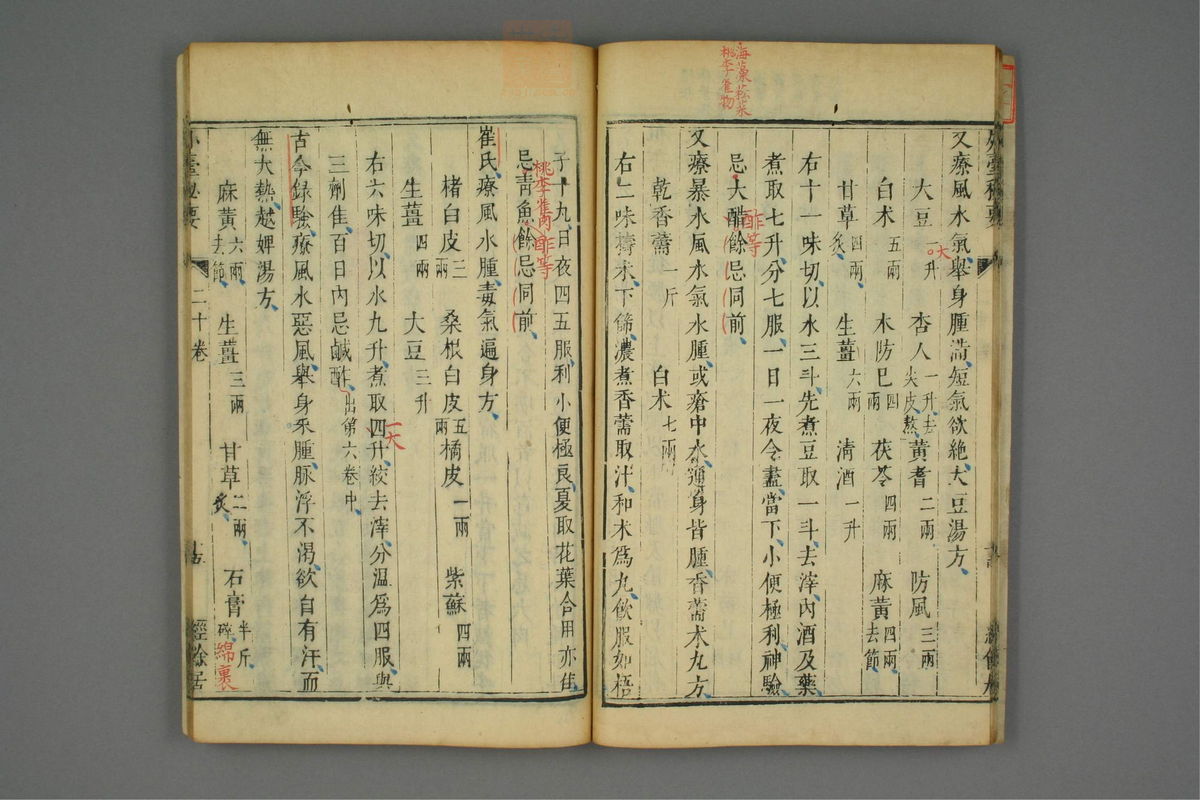 海藻菘菜
桃李雀物
又療風水氣舉身腫滿短氣欲絕大豆湯方
大豆一升 杏人一升去尖皮熬 黃耆二兩 防風三兩
大
白朮五兩 木防巳四兩 茯苓四兩 麻黃四兩去節
甘草四兩炙 生薑六兩 清酒一升
右十一味切以水三斗先煮豆取一斗去滓內酒及藥
煮取七升分七服一日一夜令盡當下小便極利神驗
忌大醋餘忌同前
酢等
又療暴水風水氣水腫或瘡中水通身皆腫香薷朮丸方
乾香薷一斤 白朮七兩
右二味擣朮下篩濃煮香薷取汁和朮為丸飲服如梧
子十九日夜四五服利小便極良夏取花葉合用亦佳
忌青魚餘忌同前
桃李雀肉酢等
崔氏療風水腫毒氣遍身方
楮白皮三兩 桑根白皮五兩 橘皮一兩 紫蘇四兩
生薑四兩 大豆三升
右六味切以水九升煮取四升絞去滓分溫為四服與
一大
三劑佳百日內忌鹹酢出第六卷中
古今錄驗療風水惡風舉身來腫脉浮不渴欲自有汗而
無大熱越婢湯方
麻黃六兩去節 生薑三兩 甘草二兩炙 石膏半斤碎
綿裹
外臺祕要 二十卷 十五 經餘居